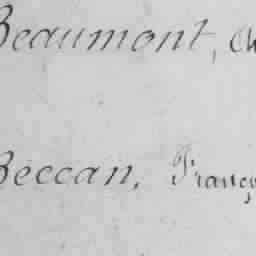 Beaumont, Ch
Beccan, Franç